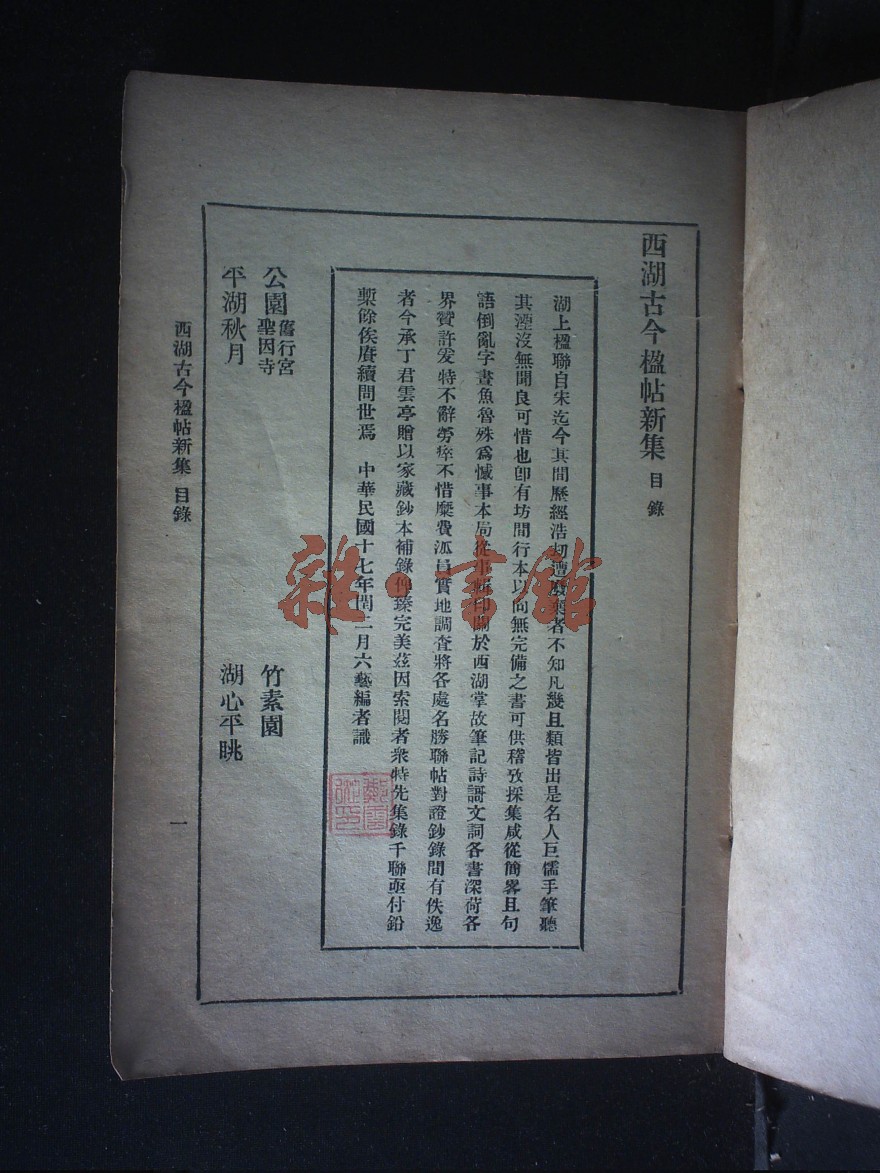 西湖古今楹帖新集 目錄
湖上楹聯自宋迄今其間歷經浩刧遭廢棄者不知凡幾且類皆出是名人巨儒手筆聽
其湮沒無聞良可惜也卽有坊間行本以向無完備之書可供稽攷採集咸從簡畧且句
語倒亂字畫魚魯殊爲憾事本局從事輯印關於西湖掌故筆記詩謌文詞各書深荷各
界贊許爰特不辭勞瘁不惜糜費派員實地調查將各處名勝聯帖對證鈔錄間有佚逸
者今承丁君雲亭贈以家藏鈔本補錄俾臻完美茲因索閱者衆特先集錄千聯亟付鉛
槧餘俟賡續問世焉 中華民國十七年閏二月六藝編者識
公園 舊行宮 聖因寺 竹素園
平湖秋月 湖心平眺
西湖古今楹帖新集 目錄 一
雜·書館